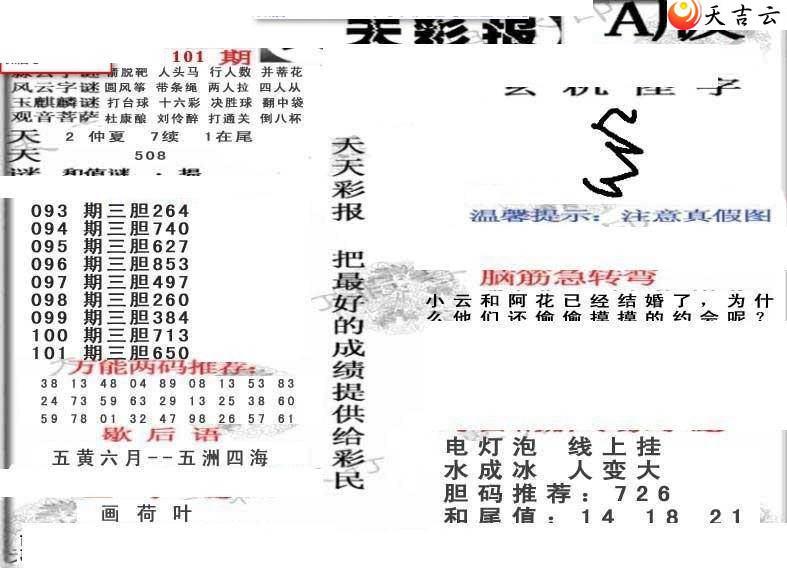 天吉云
101 期
箭脱靶 人头马 行人数 并蒂花
风云字谜 圆风筝 带条绳 两人拉 四人从
玉麒麟谜 打台球 十六彩 决胜球 翻中袋
观音菩萨 杜康酿 刘伶醉 打通关 倒八杯
天 2 仲夏 7续 1在尾
天 508
093 期三胆264
094 期三胆740
095 期三胆627
096 期三胆853
097 期三胆497
098 期三胆260
099 期三胆384
100 期三胆713
101 期三胆650
万能两码推荐:
38 13 48 04 89 08 13 53 83
24 73 59 63 29 13 25 38 60
59 78 01 32 47 98 26 57 61
歇后语
五黄六月--五洲四海
画荷叶
天天彩报 把最好的成绩提供给彩民
天彩报】
温馨提示: 注意真假图
脑筋急转弯
小云和阿花已经结婚了，为什
么他们还偷偷摸摸的约会呢?
电灯泡 线上挂
水成冰 人变大
胆码推荐: 726
和尾值: 14 18 21